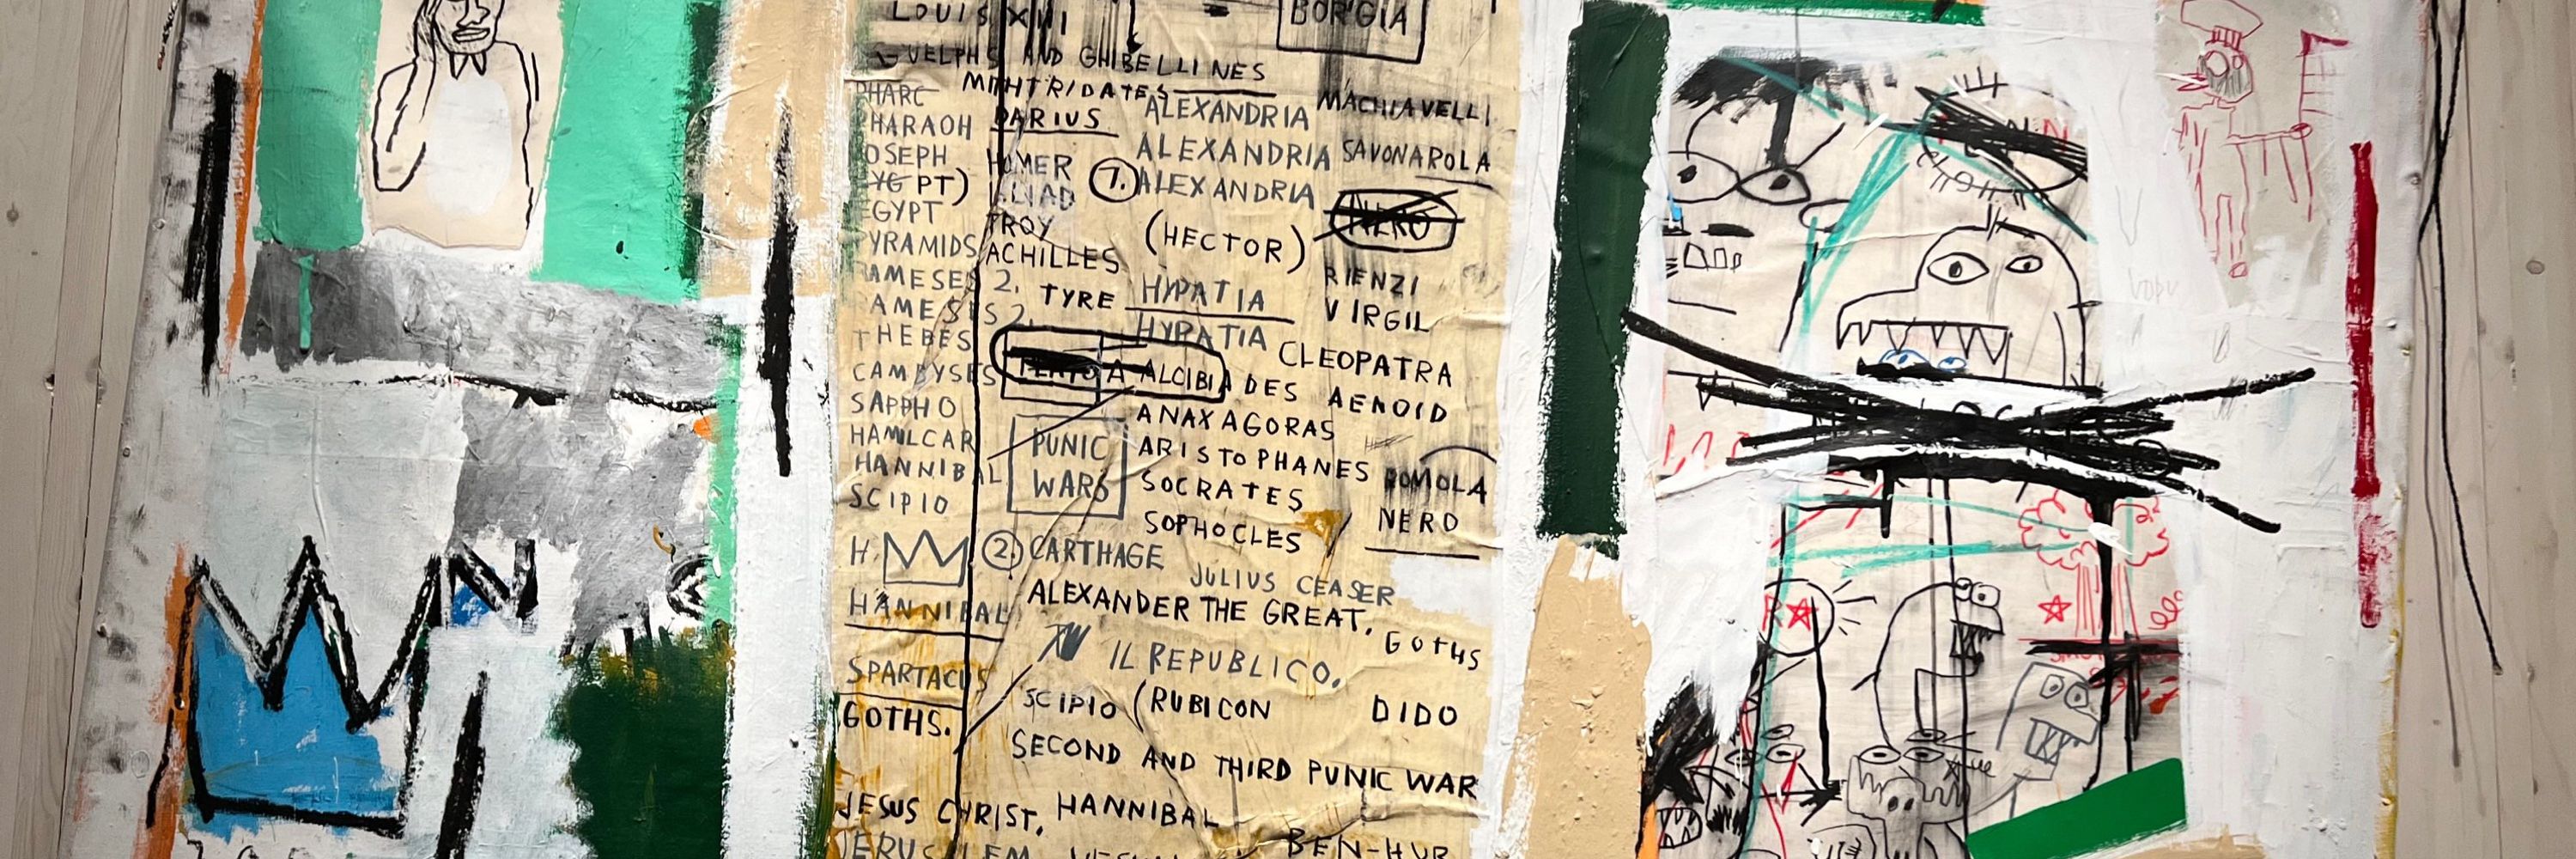 LOUIS XIII
BORGIA
GUELPHS AND GHIBELLINES
MITHTRIDATES
PHARC
PHARAOH
JOSEPH
EYG PT)
EGYPT
PYRAMIDS
RAMESES 2.
RAMESES 2.
THEBES
CAMBYSES
SAPPHO
HAMILCAR
HANNIBAL
SCIPIO
H.
HANNIBAL
SPARTACUS
GOTHS.
DARIUS
HOMER
ILLIAD
TROY
ACHILLES
TYRE
PLATO A ALCIBIADES
PUNIC
WARS
ALEXANDRIA
ALEXANDRIA
1. ALEXANDRIA
(HECTOR)
HYPATIA
HYPATIA
ANAXAGORAS
ARISTOPHANES
SOCRATES
SOPHOCLES
MACHIAVELLI.
SAVONAROLA
NERO
RIENZI
VIRGIL
CLEOPATRA
AENOID
ROMOLA
NERO
2. CARTHAGE
JULIUS CEASER
ALEXANDER THE GREAT.
GOTHS
IL REPUBLICO.
SCIPIO (RUBICON
DIDO
SECOND AND THIRD PUNIC WAR
JESUS CHRIST. HANNIBAL
JERUSALEM
BEN-HUR